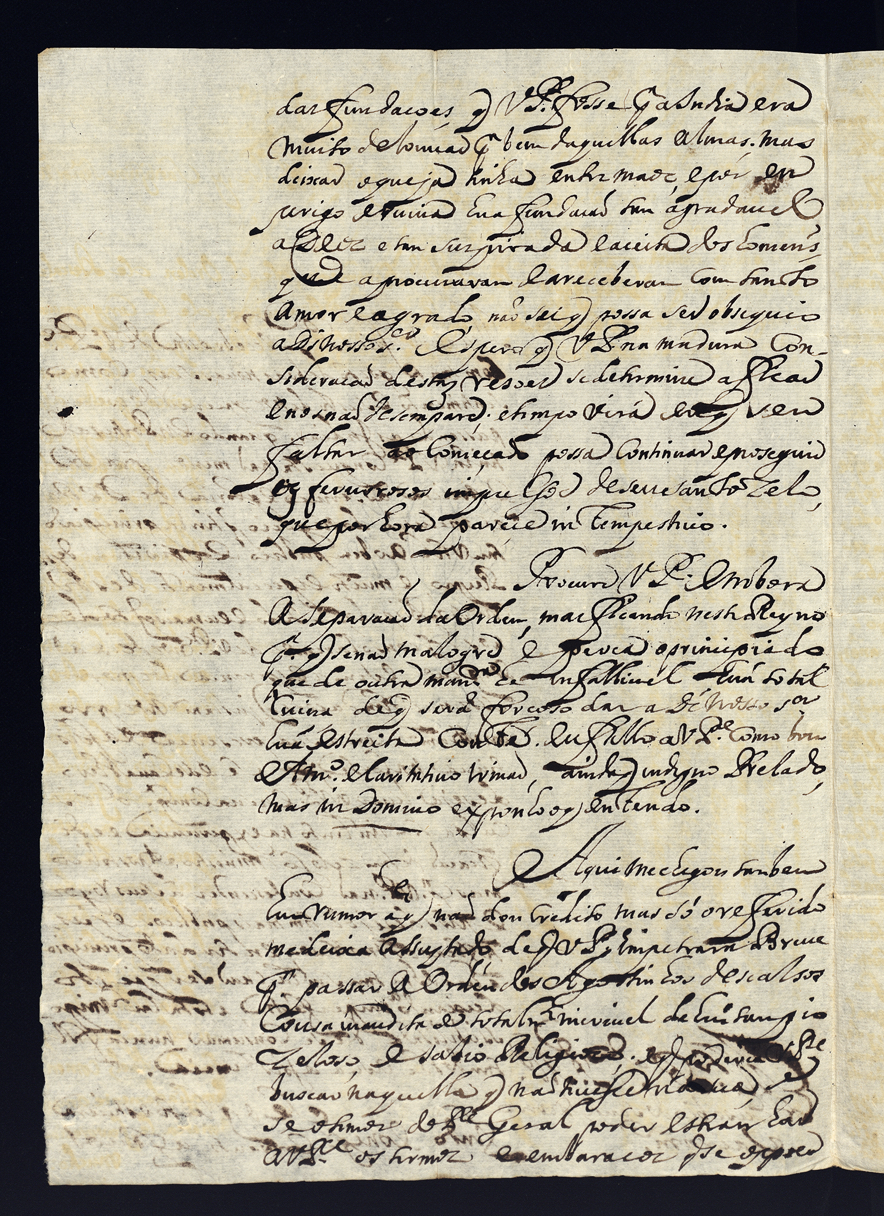 dar fundações, q̃ V P.e fosse p.a a India era
muito de louvar p.a bem daquellas almas. mas
deixar o que ja tinha entre maõs, e pôr em
perigo e ruina hua fundaçaõ tam agradavel
a Deos e tam suspirada e aceita dos homens
que a procuravam e a receberam com tanto
amor e agrado naõ sei q̃ possa ser obsequio
a Ds nosso s.or Espero q̃ V P. na madura con-
sideraçaõ destas rezoes se determine a ficar
e nos naõ desempare. e tempo virá em q̃ sem
faltar ao começado possa continuar e proseguir
os fervorosos impulsos desse santo zelo,
que por hora parece intempestivo.
Procure V P.e embora
a separaçaõ da Ordem, mas ficando neste Reyno
p.a q̃ se naõ malogre e perca o principiado
que de outra man.ra he infallivel hua total
ruina de q̃ será forçoso dar a Ds Nosso s.or
hua estreita conta. eu fallo a V P.e como bom
Am.o e Caritativo irmaõ, ainda q̃ indigno Prelado,
mas in Domino exponho o q̃ entendo.
Aqui me chegou tambem
hum rumor a q̃ naõ dou credito mas só o referido
me deixa assustado de q̃ V P.e impetrara Breve
p.a passar a Ordem dos Agostinhos descalsos
Cousa inaudita e total.te incrivel de hum tam pio
zeloso e sabio Religioso. e q̃ poderia V P.e
buscar naquella q̃ naõ
se o temor do P.e Geral poder estranhar
a V P.e os termos e embaraços q̃ se expoem